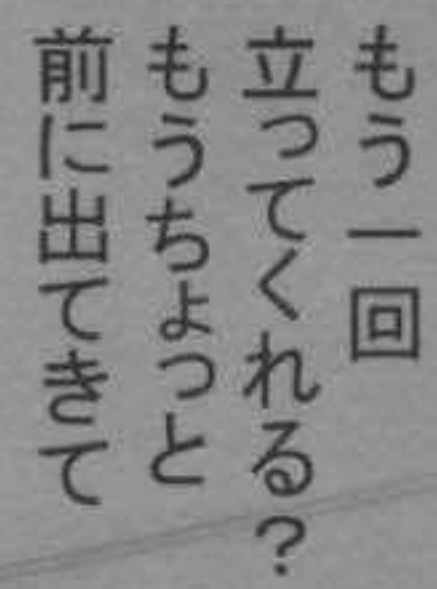 もう一回
立ってくれる?
もうちょっと
前に出てきて